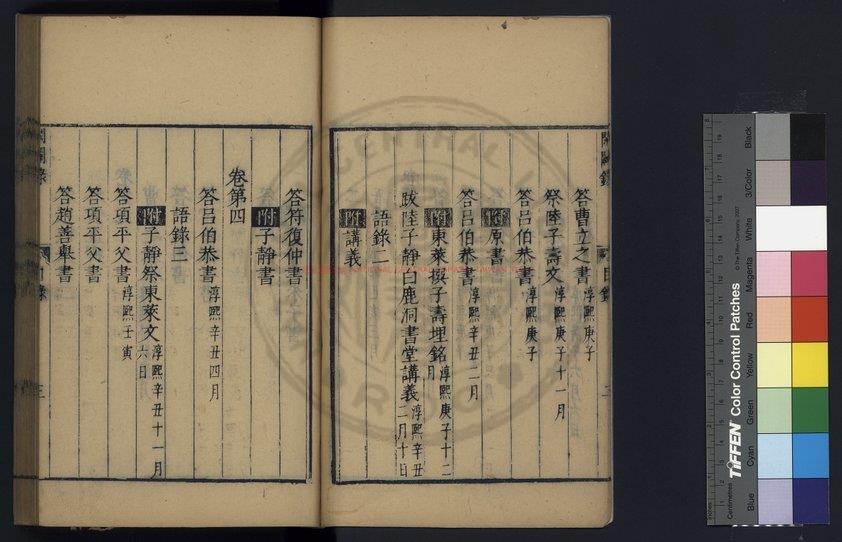 答曹立之書淳熙庚子
祭陸子壽文淳熙庚子十一月
答呂伯恭書淳熙庚子
附原書
答呂伯恭書淳熙辛丑二月
附東萊撰子壽埋銘淳熙庚子十二月
跋陸子靜白鹿洞書堂講義淳熙辛丑二月十日
附講義
語錄二
答符復仲書
附子靜書
卷第四
答呂伯恭書淳熙辛丑四月
語錄三
附子靜祭東萊文淳熙辛丑十一月六日
答項平父書淳熙壬寅
答項平父書
答趙善舉書
三
Black
3/Color
White
Magenta
Red
Yellow
Green
Cyan
Blue
TIFFEN Color Control Patches
© The Tiffen Company, 2007
Centimetres
Inches